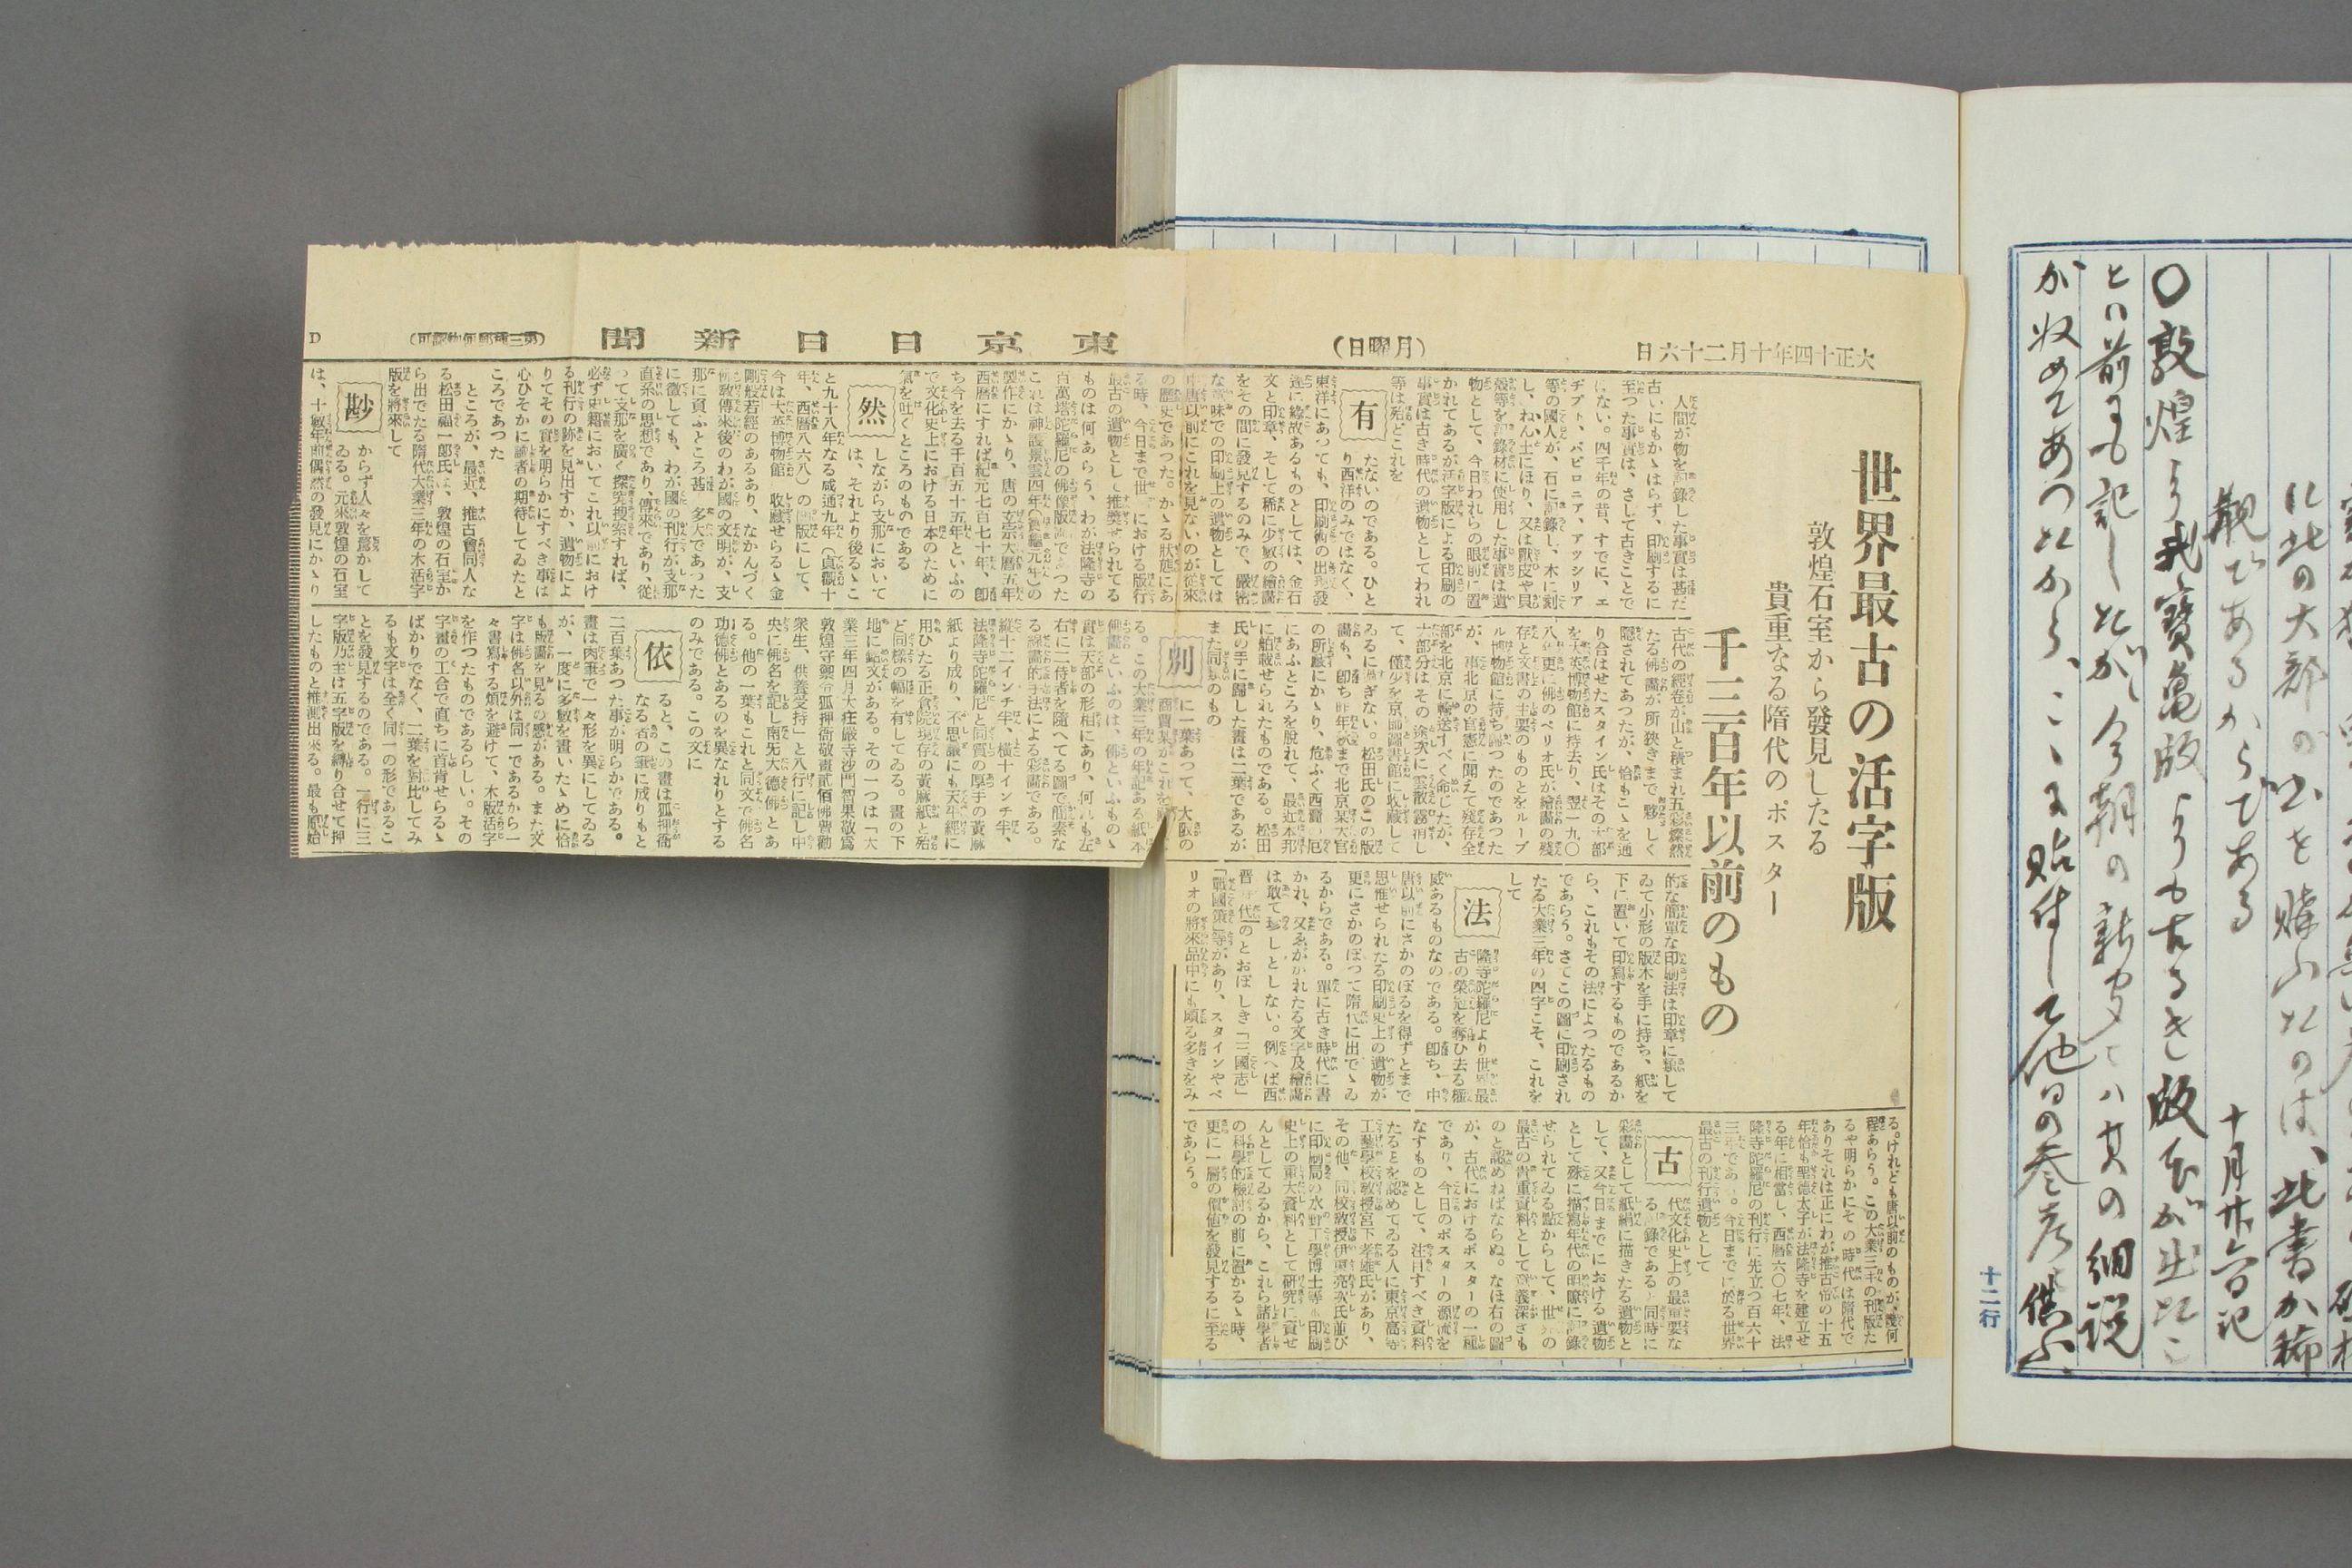 覯であるからである 十月廿六日記
〇敦煌より我寶亀版よりも古るき版本が出たこ
とは前にも記したが、今朝の新聞には其の細説
が収めてあつたから、こゝに貼付して他日の参考に供ふ
十二行
大正十四年十月二十六日
(月曜日)
東京日日新聞
(第三種郵便物認可)
D
世界最古の活字版
敦煌石室から發見したる
貴重なる隋代のポスター
千三百年以前のもの
人間が物を記錄した事實は甚だ
古いにもかゝはらず、印刷するに
至つた事實は、さして古きことで
はない。四千年の昔、すでに、エ
ヂプト、バビロニア、アッシリア
等の國人が、石に記錄し、木に刻
し、ねん土にほり、又は獸皮や貝
殼等を記錄材に使用した事實は遺
物として、今日われらの眼前に置
かれてあるが活字版による印刷の
事實は古き時代の遺物としてわれ
等は殆どこれを
有
たないのである。ひと
り西洋のみではなく、
東洋にあつても、印刷術の出現發
達に緣故あるものとしては、金石
文と印章、そして稀に少數の繪畵
をその間に發見するのみで、嚴密
な意味での印刷上の遺物としては
中唐以前にこれを見ないのが從來
の歷史であつた。かゝる狀態にあ
る時、今日まで世界における版行
最古の遺物として推奬せられてる
ものは何あらう、わが法隆寺の
百萬塔陀羅尼の佛像版畵であつた
これは神護景雲四年(寶龜元年)の
製作にかゝり、唐の玄宗大曆五年
西曆にすれば紀元七百七十年、卽
ち今を去る千百五十五年といふの
で文化史上における日本のために
氣を吐くところのものである
然
しながら支那において
は、それより後るゝこ
と九十八年なる咸通九年(貞觀十
年、西曆八六八)の開版にして、
今は大英博物館に收藏せらるゝ金
剛般若經のあるあり、なかんづく
佛敎傳來後のわが國の文明が、支
那に負ふところ甚だ多大であつた
に徵しても、わが國の刊行が支那
直系の思想であり、傳來であり、從
つて支那を廣く探究搜索すれば、
必ず史籍においてこれ以前におけ
る刊行の跡を見出すか、遺物によ
りてその實を明らかにすべき事は
心ひそかに識者の期待してゐたと
ころであつた
ところが、最近、推古會同人な
る松田福一郞氏は、敦煌の石室か
ら出でたる隋代大業三年の木活字
版を將來して
尠
からず人々を驚かして
ゐる。元來敦煌の石室
は、十數年前偶然の發見にかゝり
古代の經卷が山と積まれ五彩燦然
たる佛畵が所狹きまで夥しく
隱されてあつたが、恰もこゝを通
り合はせたスタイン氏はその大部
を大英博物館に持去り、翌一九〇
八年更に佛のペリオ氏が繪畵の殘
存と文書の主要のものとをルーブ
ル博物館に持ち歸つたのであつた
が、事北京の官憲に聞えて殘存全
部を北京に輸送すべく命じたが、
大部分はその途次に雲散霧消し
て、僅少を京師圖書館に收藏して
ゐるに過ぎない。松田氏のこの版
畵も、卽ち昨年秋まで北京某大官
の所藏にかゝり、危ふく西灣の厄
にあふところを脫れて、最近本邦
に舶載せられたものである。松田
氏の手に歸した畫は二葉であるが
また同類のもの
別
に一葉あつて、大阪の
商賈某がこれを
る。この大業三年の年記ある紙本
佛畵といふのは、佛といふものゝ
實は天部の形相にあり、何れも左
右に二侍者を隨へてる圖で簡素な
る線畵的手法による彩畵である。
縱十二インチ半、橫十インチ半、
法隆寺陀羅尼と同質の厚手の黃蔴
紙より成り、不思議にも天平經に
用ひたる正倉院現存の黃蔴紙と殆
ど同樣の幅を有してゐる。畫の下
地に銘文がある。その一つは「大
業三年四月大莊嚴寺沙門智果敬爲
敦煌守禦令狐押衙敬畫貳佰佛普勸
衆生、供養受持」と八行に記し中
央に佛名を記し南旡大德佛とあ
る。他の一葉もこれと同文で佛名
功德佛とあるのを異なれりとする
のみである。この文に
依
ると、この畫は狐押衙
なる者の囑に成りもと
二百葉あつた事が明らかである。
畫は肉筆で一々形を異にしてゐる
が、一度に多數を畫いたゝめに恰
も版畫を見るの感がある。また文
字は佛名以外は同一であるから一
々書寫する煩を避けて、木版活字
を作つたものであるらしい。その
字畫の工合で直ちに首肯せらるゝ
ばかりでなく、二葉を對比してみ
るも文字は全く同一の形であるこ
とを發見するのである。一行に三
字版乃至は五字版を綴り合せて押
したものと推測出來る。最も原始
的な簡單な印刷法は印章に類して
ゐて小形の版木を手に持ち、紙を
下に置いて印寫するものであるか
ら、これもその法によつたるもの
であらう。さてこの圖に印刷され
たる大業三年の四字こそ、これを
して
法
隆寺陀羅尼より世界最
古の榮冠を奪ひ去る權
威あるものなのである。卽ち、中
唐以前にさかのぼるを得ずとまで
思惟せられたる印刷史上の遺物が
更にさかのぼつて隋代に出でゝゐ
るからである。單に古き時代に書
かれ、又ゑがかれたる文字及繪畵
は敢て珍しとしない。例へば西
晋時代のとおぼしき「三國志」
「戰國策」等があり、スタインやペ
リオの將來品中にも頗る多きをみ
る。けれども唐以前のものが、幾何
程あらう。この大業三年の刊版た
るや明らかにその時代は隋代で
ありそれは正にわが推古帝の十五
年恰も聖德太子が法隆寺を建立せ
る年に相當し、西曆六〇七年、法
隆寺陀羅尼の刊行に先立つ百六十
三年である。今日までに於る世界
最古の刊行遺物として
古
代文化史上の最重要な
る記錄であると同時に
彩畵として紙絹に描きたる遺物と
して、又今日までにおける遺物
として殊に描寫年代の明瞭に記錄
せられてゐる點からして、世界の
最古の貴重資料として意義深きも
のと認めねばならぬ。なほ右の圖
が、古代におけるポスターの一種
であり、今日のポスターの源流を
なすものとして、注目すべき資料
たるとを認めてゐる人に東京高等
工藝學校敎授宮下孝雄氏があり、
その他、同校敎授伊東亮次氏並び
に印刷局の水野工學博士等も印刷
史上の重大資料として硏究に資せ
んとしてゐるから、これら諸學者
の科學的檢討の前に置かるゝ時、
更に一層の價値を發見するに至る
であらう。